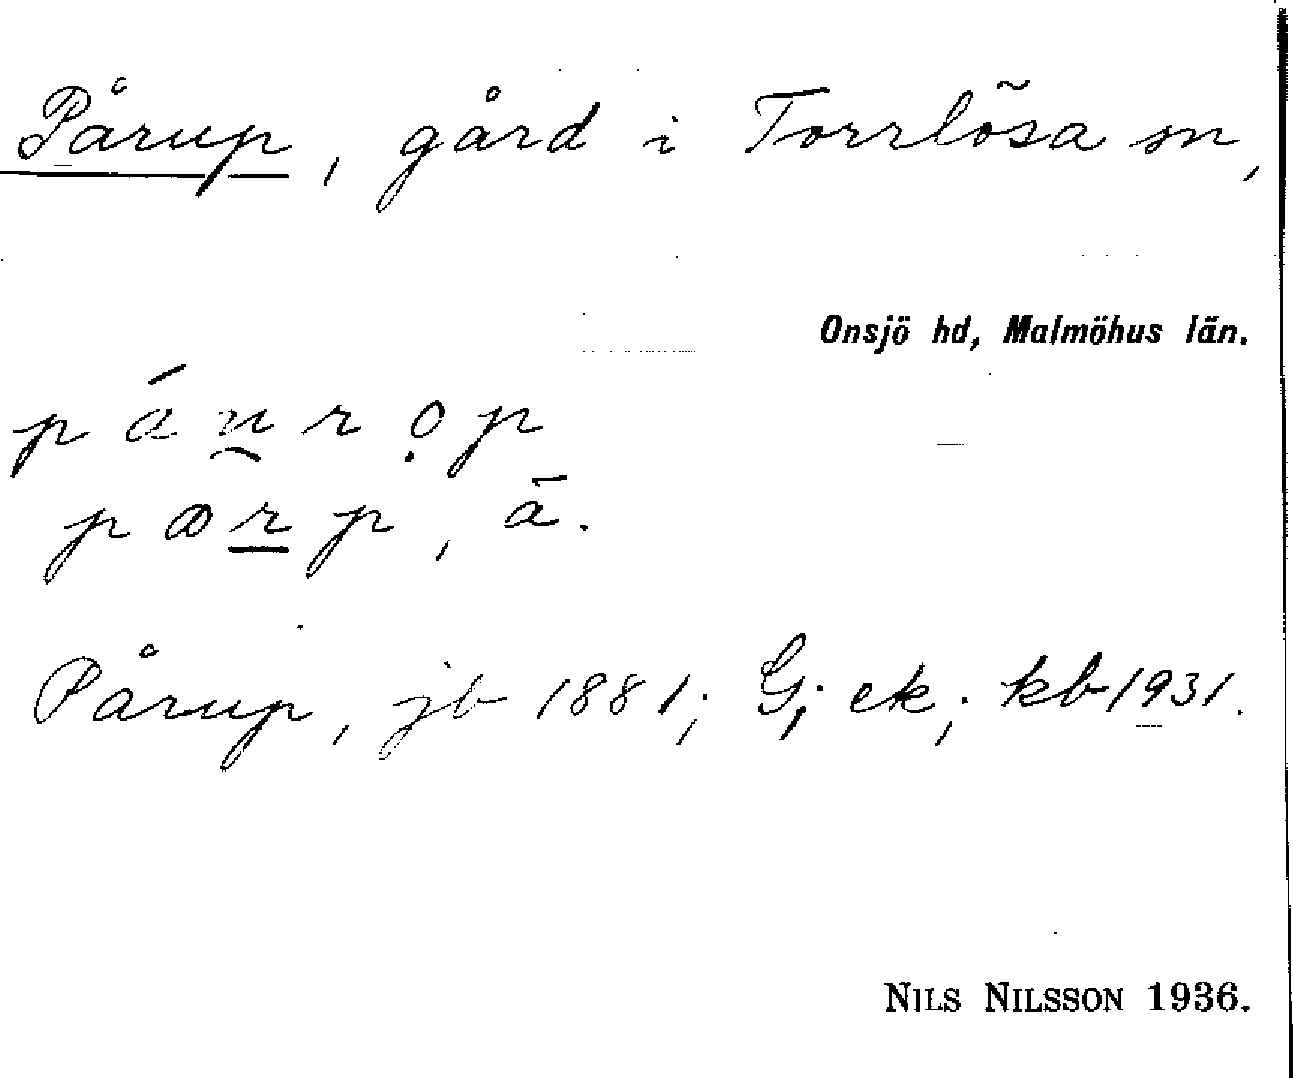 Pårup, gård i Torrlösa sn,
Onsjö hd, Malmöhus län.
Pårup, jb 1881; G; ek; kb 1931.
NILS NILSSON 1936.